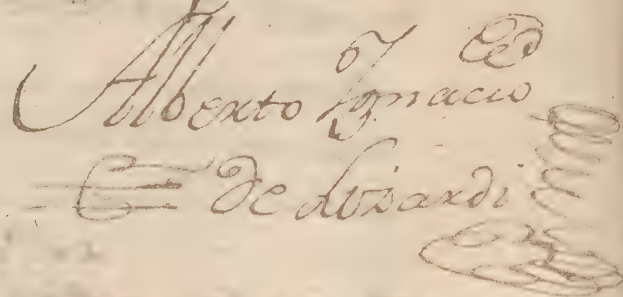 Alberto Ignacio
de Lizardi